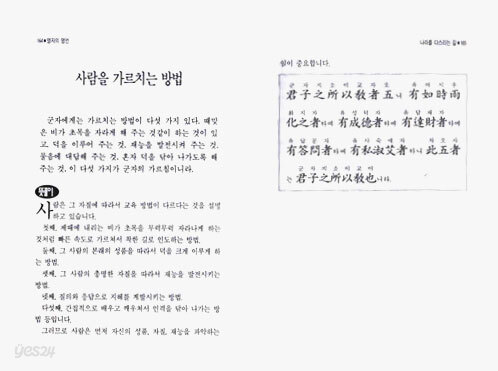 164 ● 맹자의 명언
사람을 가르치는 방법
군자에게는 가르치는 방법이 다섯 가지 있다. 때맞
은 비가 초목을 자라게 해 주는 것같이 하는 것이 있
고, 덕을 이루어 주는 것, 재능을 발전시켜 주는 것,
물음에 대답해 주는 것, 혼자 덕을 닦아 나가도록 해
주는 것, 이 다섯 가지가 군자의 가르침이니라.
뜻풀이
사람은 그 자질에 따라서 교육 방법이 다르다는 것을 설명
하고 있습니다.
첫째, 제때에 내리는 비가 초목을 무럭무럭 자라나게 하는
것처럼 빠른 속도로 가르쳐서 착한 길로 인도하는 방법.
둘째, 그 사람의 본래의 성품을 따라서 덕을 크게 이루게 하
는 방법.
셋째, 그 사람의 총명한 자질을 따라서 재능을 발전시키는
방법.
넷째, 질의와 응답으로 지혜를 계발시키는 방법.
다섯째, 간접적으로 배우고 깨우쳐서 인격을 닦아 나가는 방
법 등입니다.
그러므로 사람은 먼저 자신의 성품, 자질, 재능을 파악하는
나라를 다스리는 길 ● 165
쉼이 중요합니다.
군자지소이교자오 유여시우
君子之所以敎者五니 有如時雨
화지자 유성덕자 유달재자
化之者하며 有成德者하며 有達財者하며
유답문자 유사숙애자 차오자
有答問者하며 有私淑艾者하니 此五者
군자지소이교야
는 君子之所以敎也니라.
yes24